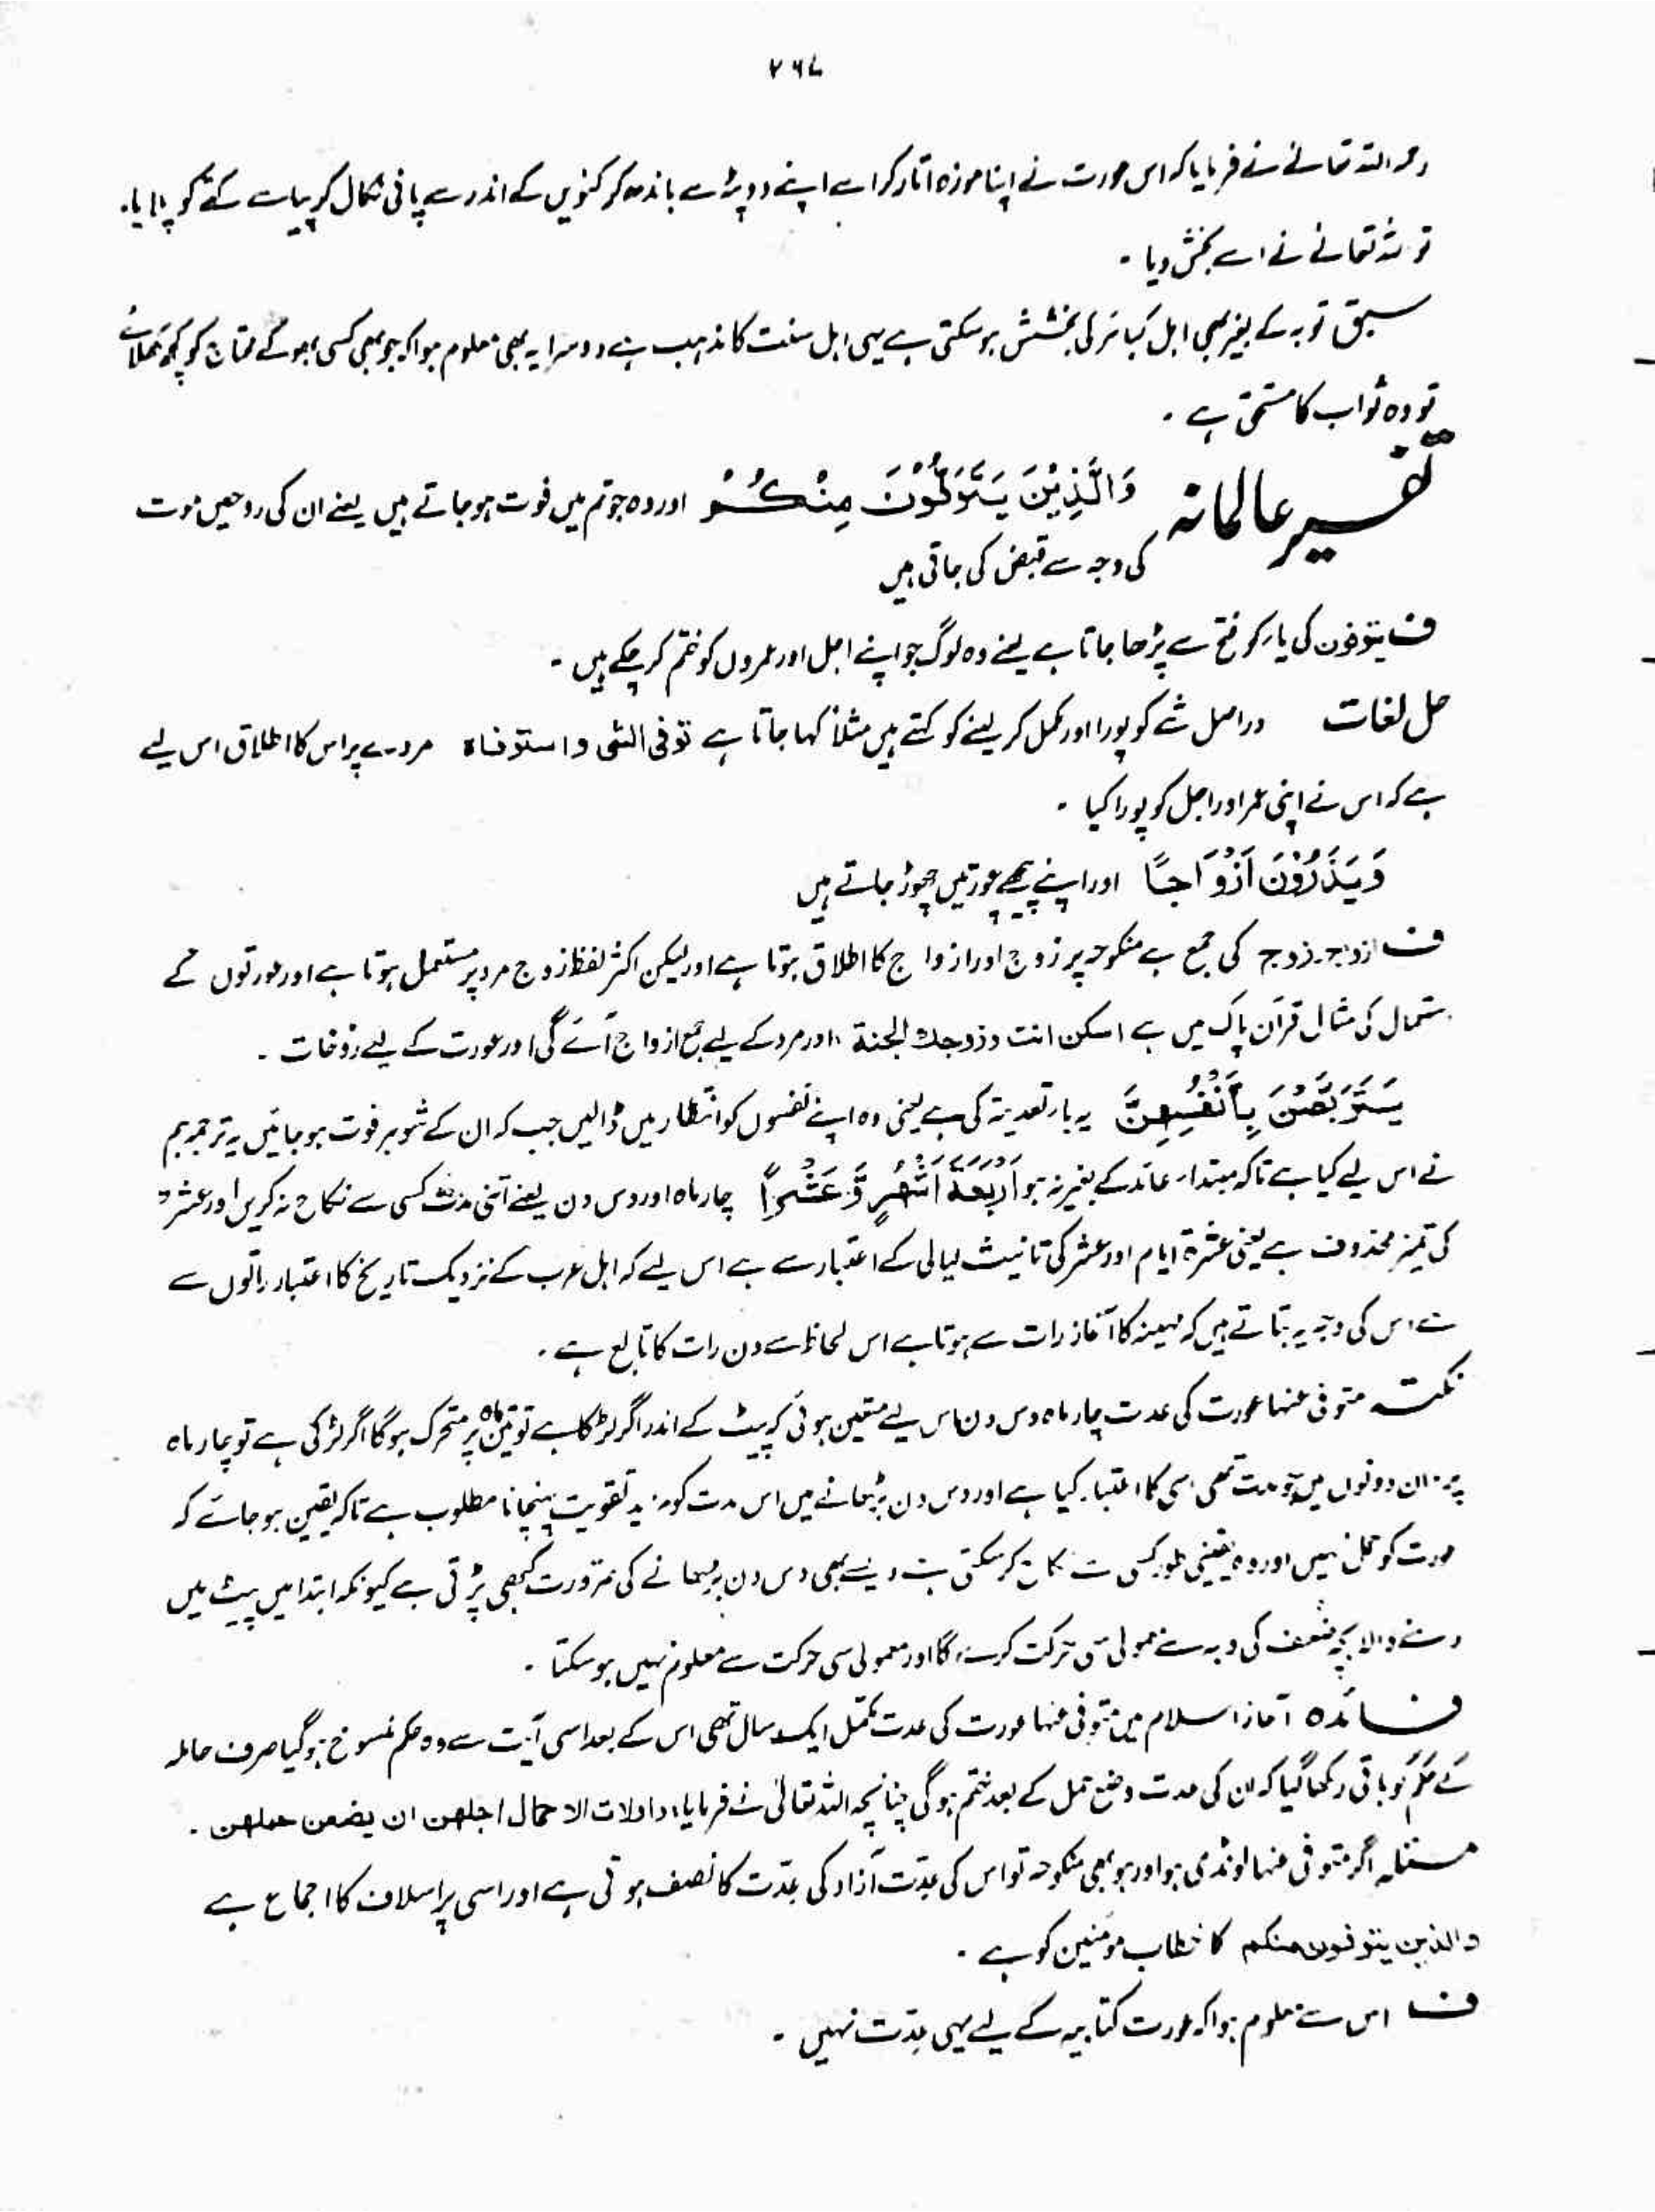 ۲۶۷
رحمہ اللہ تعالےٰ نے فرمایا کہ اس عورت نے اپنا موزہ اتار کر اسے اپنے دوپٹہ سے باندھ کر کنویں کے اندر سے پانی نکال کر پیاسے کتے کو پلایا۔
تو اللہ تعالےٰ نے اسے بخش دیا۔
سبق توبہ کے بغیر بھی اہل کبائر کی بخشش ہو سکتی ہے یہی اہل سنت کا مذہب ہے دوسرا یہ بھی معلوم ہوا کہ جو بھی کسی بھوکے محتاج کو کچھ کھلائے
تو وہ ثواب کا مستحق ہے۔
تفسیر عالمانہ وَالَّذِیْنَ یُتَوَفَّوْنَ مِنْكُمْ اور وہ جو تم میں فوت ہو جاتے ہیں یعنے ان کی روحیں موت
کی وجہ سے قبض کی جاتی ہیں
ف یتوفون کی یا کو فتح سے پڑھا جاتا ہے یعنے وہ لوگ جو اپنے اجل اور عمروں کو ختم کر چکے ہیں۔
حل لغات دراصل شے کو پورا اور مکمل کر لینے کو کہتے ہیں مثلاً کہا جاتا ہے توفی الشی واستوفاہ مردے پر اس کا اطلاق اس لیے
ہے کہ اس نے اپنی عمر اور اجل کو پورا کیا۔
وَیَذَرُوْنَ اَزْوَاجًا اور اپنے پیچھے عورتیں چھوڑ جاتے ہیں
ف ازواج۔ زوج کی جمع ہے منکوحہ پر زوج اور ازواج کا اطلاق ہوتا ہے اور لیکن اکثر لفظ زوج مرد پر مستعمل ہوتا ہے اور عورتوں کے
ستمال کی مثال قرآن پاک میں ہے اسکن انت وزوجك الجنة اور مرد کے لیے جمع ازواج آئے گی اور عورت کے لیے زوجات۔
یَتَرَبَّصْنَ بِاَنْفُسِهِنَّ یہ بار تعدیۃ کی ہے یعنی وہ اپنے نفسوں کو انتظار میں ڈالیں جب کہ ان کے شوہر فوت ہو جائیں یہ ترجمہ ہم
نے اس لیے کیا ہے تاکہ مبتدا عائد کے بغیر نہ ہو اَرْبَعَةَ اَشْهُرٍ وَّ عَشْرًا چار ماہ اور دس دن یعنے اتنی مدت کسی سے نکاح نہ کریں اور عشر
کی تمیز محذوف ہے یعنی عشرۃ ایام اور عشر کی تانیث لیالی کے اعتبار سے ہے اس لیے کہ اہل عرب کے نزدیک تاریخ کا اعتبار راتوں سے
ہے اس کی وجہ یہ بتاتے ہیں کہ مہینہ کا آغاز رات سے ہوتا ہے اس لحاظ سے دن رات کا تابع ہے۔
نکتہ متوفی عنہا عورت کی عدت چار ماہ دس دن اس لیے متعین ہوئی کہ پیٹ کے اندر اگر لڑکا ہے تو تین ماہ پر متحرک ہو گا اگر لڑکی ہے تو چار ماہ
پر ان دونوں میں جو مدت تھی اسی کا اعتبار کیا ہے اور دس دن بڑھانے میں اس مدت کو مزید تقویت پہنچانا مطلوب ہے تاکہ یقین ہو جائے کہ
عورت کو حمل نہیں اور وہ یقینی طور کسی سے نکاح کر سکتی ہے ویسے بھی دس دن بڑھانے کی ضرورت بھی پڑتی ہے کیونکہ ابتدا میں پیٹ میں
رہنے والا بچہ ضعف کی وجہ سے معمولی سی حرکت کرے گا اور معمولی سی حرکت سے معلوم نہیں ہو سکتا۔
فائدہ آغاز اسلام میں متوفی عنہا عورت کی عدت مکمل ایک سال تھی اس کے بعد اسی آیت سے وہ حکم منسوخ ہو گیا صرف حاملہ
کے حکم کو باقی رکھا گیا کہ ان کی عدت وضع حمل کے بعد ختم ہو گی چنانچہ اللہ تعالیٰ نے فرمایا، واولات الاحمال اجلھن ان یضعن حملھن۔
مسئلہ اگر متوفی عنہا لونڈی ہو اور ہو بھی منکوحہ تو اس کی عدت آزاد کی عدت کا نصف ہوتی ہے اور اسی پر اسلاف کا اجماع ہے
والذین یتوفون منکم کا خطاب مؤمنین کو ہے۔
ف اس سے معلوم ہوا کہ عورت کتابیہ کے لیے یہی عدت نہیں۔